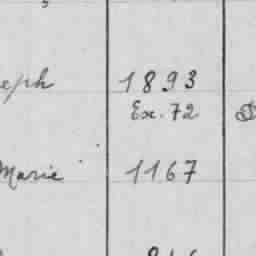 eph 1893
Ex. 72
Marie 1167